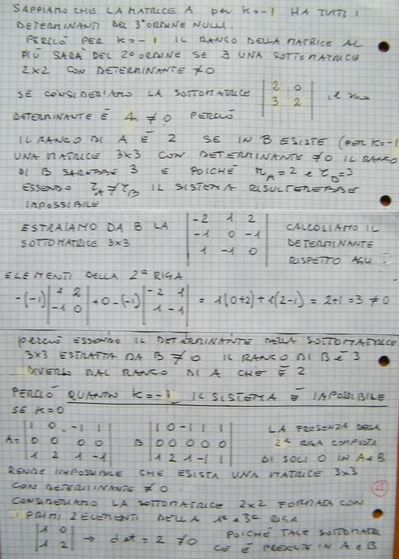 SAPPIAMO CHE LA MATRICE A per K=-1 HA TUTTI I
DETERMINANTI DEL 3° ORDINE NULLI.
PERCIÒ PER K=-1 IL RANGO DELLA MATRICE AL
PIÙ SARÀ DEL 2° ORDINE SE ∃ UNA SOTTOMATRICE
2x2 CON DETERMINANTE ≠0
SE CONSIDERIAMO LA SOTTOMATRICE |2 0| il suo
|3 2|
DETERMINANTE È 4 ≠0 PERCIÒ
IL RANGO DI A È 2 SE IN B ESISTE (per K=-1
UNA MATRICE 3x3 CON DETERMINANTE ≠0 IL RANGO
DI B SAREBBE 3 E POICHÉ rA=2 e rB=3
ESSENDO rA≠rB IL SISTEMA RISULTEREBBE
IMPOSSIBILE
ESTRAIAMO DA B LA |-2 1 2| CALCOLIAMO IL
SOTTOMATRICE 3x3 |-1 0 -1| DETERMINANTE
|1 -1 0| RISPETTO AGLI
ELEMENTI DELLA 2ª RIGA
-(-1)|1 2| +0-(-1)|-2 1| = 1(0+2)+1(2-1) = 2+1=3 ≠0
|-1 0| |1 -1|
perciò ESSENDO IL DETERMINANTE DELLA SOTTOMATRICE
3x3 ESTRATTA DA B ≠0 IL RANGO DI B È 3
DIVERSO DAL RANGO DI A CHE È 2
PERCIÒ QUANDO K=-1 IL SISTEMA È IMPOSSIBILE
SE K=0
|1 0 -1 1| |1 0 -1 1 1| LA PRESENZA DELLA
A= |0 0 0 0| B |0 0 0 0 0| 2ª RIGA COMPOSTA
|1 2 1 -1| |1 2 1 -1 1| DI SOLI 0 IN A e B
RENDE IMPOSSIBILE CHE ESISTA UNA MATRICE 3x3
CON DETERMINANTE ≠0
CONSIDERIAMO LA SOTTOMATRICE 2x2 FORMATA CON
I PRIMI 2 ELEMENTI DELLA 1ª e 3ª RIGA
|1 0| → det = 2 ≠0 POICHÉ TALE SOTTOMATR
|1 2| CE È PRESENTE IN A e B